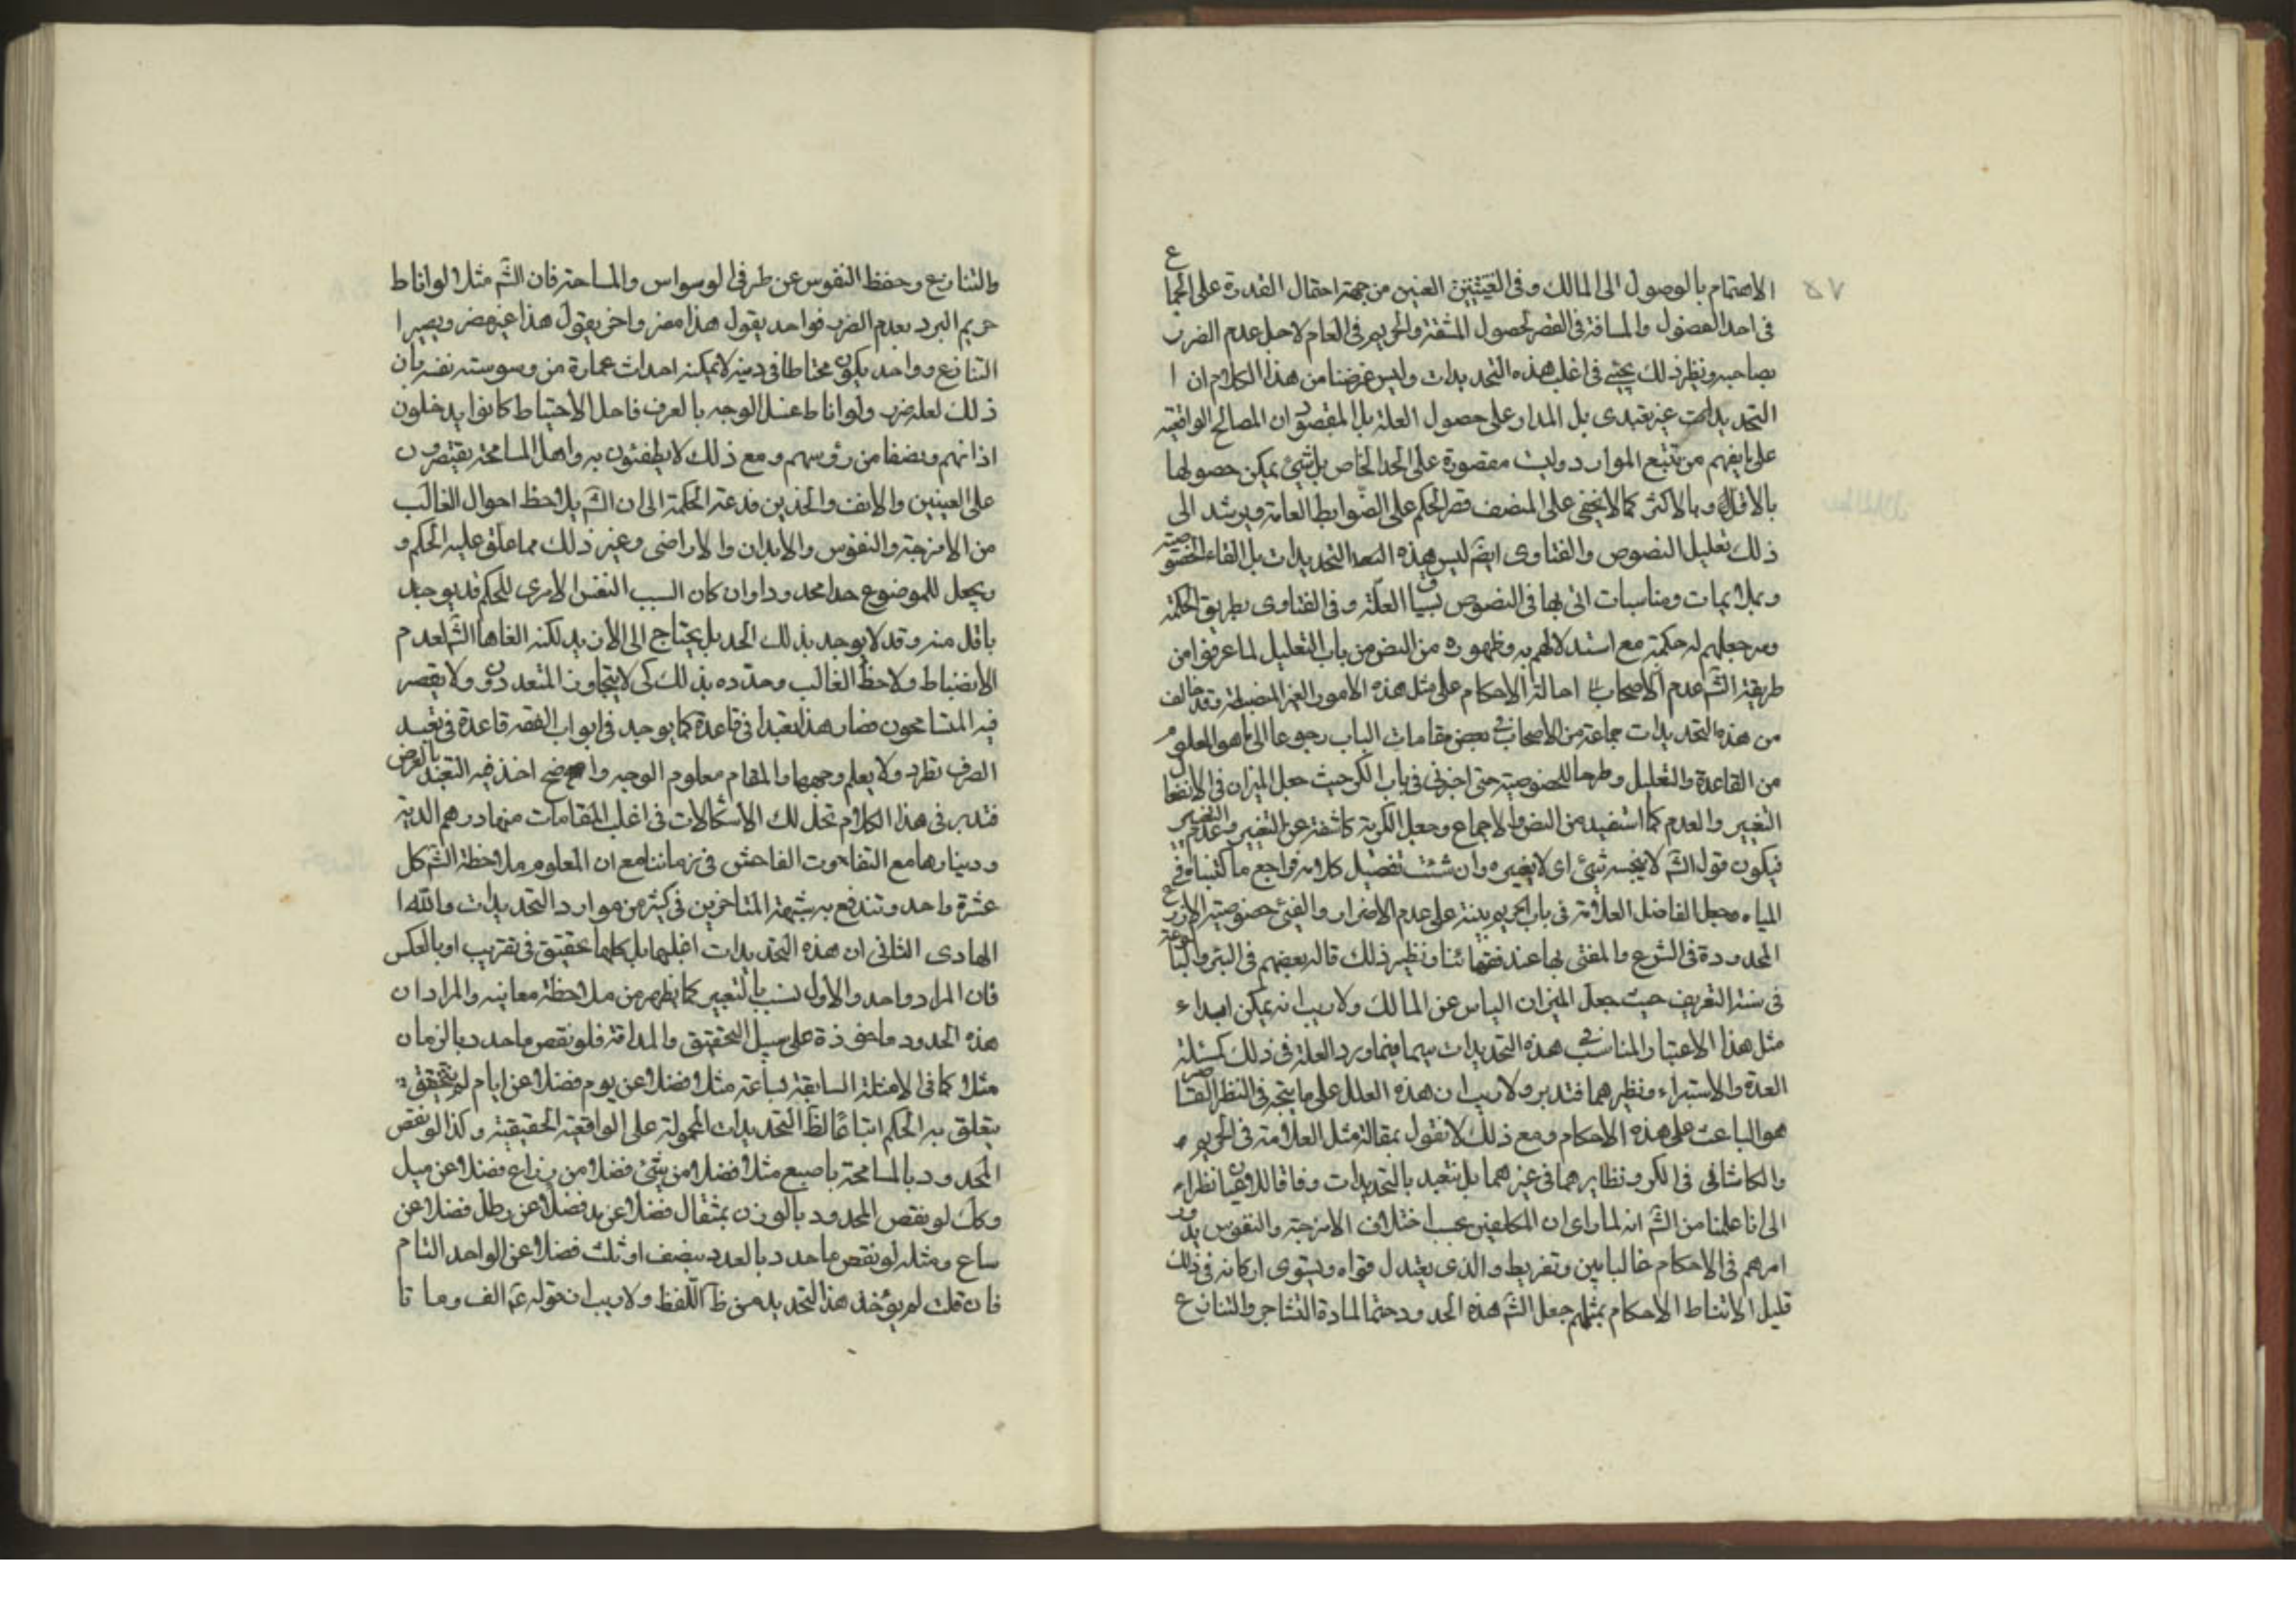 ٥٧
الاهتمام بالوصول الى المالك وفى العنين من جهة احتمال القدرة على الجماع
فى احد الفصول والمسافة فى القصر لحصول المشقة والحريم فى العام لاجل عدم الضرر
بصاحبه ونظير ذلك يجئ فى اغلب هذه التحديدات وليس غرضنا من هذا الكلام ان ا
التحديدات غير تعبدى بل المدار على حصول العلة بل المقصود ان المصالح الواقعية
على ما يفهم من تتبع الموارد وليست مقصورة على الحد الخاص بل شئ يمكن حصولها
بالاقل وبالاكثر كما لا يخفى على المنصف قصر الحكم على الضوابط العامة ويرشد الى
ذلك تعليل النصوص والفتاوى ايضا ليس هذه التحديدات بل الغاء الخصوصية
ومناسبات اتى بها فى النصوص بسياق العلة وفى الفتاوى بطريق الحكمة
ومع جعلهم له حكمة مع استدلالهم به وظهوره من النص من باب التعليل لما عرفوا من
طريقة الشّ عدم احالة الاحكام على مثل هذه الامور الغير المنضبطة وقد خالف
من هذه التحديدات جماعة من الاصحاب فى بعض مقامات الباب رجوعا الى ما هو المعلوم
من القاعدة والتعليل وطرحا للخصوصية حتى اجترئ فى باب الكر حيث جعل الميزان فى الانفعال
التغيير والعدم كما استفيد من النص والاجماع وجعل الكرية كاشفة عن التغيير وعدم التغيير
فيكون قول الشّ لا ينجسه شئ اى لا يغيره وان شئت تفصيل كلامه فراجع ما كتبناه فى
المياه وجعل الفاضل العلامة فى باب الحريم بينة على عدم الاضرار والغى خصوصية الاذرع
المحدودة فى الشرع والمفتى بها عند فقهائنا ونظير ذلك قاله بعضهم فى البئر والبالوعة
فى سنة التعريف حيث جعل الميزان الياس عن المالك ولا ريب انه يمكن ابداء
مثل هذا الاعتبار والمناسب فى هذه التحديدات سيما فيما ورد العلة فى ذلك كمسئلة
العدة والاستبراء ونظيرهما فتدبر ولا ريب ان هذه العلل على ما يتجه فى النظر القاصر
هو الباعث على هذه الاحكام ومع ذلك لا نقول بمقالة مثل العلامة فى الحريم
والكاشانى فى الكر ونظايرهما فى غيرهما بل نتعبد بالتحديدات وفاقا للاوفيين نظرا
الى انا علمنا من الشّ انه لما راى ان المكلفين بحسب اختلاف الامزجة والنفوس يدور
امرهم فى الاحكام غالبا بين وتفريط والذى يعتدل قواه ويستوى اركانه فى ذلك
قليل لا تناط الاحكام بمثلهم جعل الشّ هذه الحدود حتما لمادة التشاجر والتنازع
والتنازع وحفظ النفوس عن طرفى الوسواس والمسامحة فان الشّ مثلا لو اناط
حريم البرد بعدم الضرر فواحد يقول هذا مضر واخر يقول هذا غير مضر ويصير ا
التنازع وواحد يكون محتاطا فى دينه لا يمكنه احداث عمارة من وسوسة نفسه بان
ذلك لعله ضرر ولو اناط غسل الوجه بالعرف فاهل الاحتياط كانوا يدخلون
اذانهم ونصفا من رؤسهم ومع ذلك لا يطمئنون به واهل المسامحة يقتصرون
على العينين والانف والخدين فدعته الحكمة الى ان الشّ يلاحظ احوال الغالب
من الامزجة والنفوس والابدان والاراضى وغير ذلك مما علق عليه الحكم و
ويجعل للموضوع حدا محدودا وان كان السبب النفس الامرى للحكم قد يوجد
باقل منه وقد لا يوجد بذلك الحد بل يحتاج الى الازيد لكنه الغاها الشّ لعدم
الانضباط ولاحظ الغالب وحدده بذلك كى لا يتجاوز المتعددون ولا يقصر
فيه المتسامحون فصار هذا تعبدا فى قاعدة كما يوجد فى ابواب الفقه قاعدة فى تعبد
الصرف تطرد ولا يعلم وجهها والمقام معلوم الوجه واضح اخذ فيه التعبد بالعرض
فتدبر فى هذا الكلام تحل لك الاشكالات فى اغلب المقامات منها درهم الدية
ودينارها مع التفاوت الفاحش فى زماننا مع ان المعلوم ملاحظة الشّ كل
عشرة واحد وتندفع به شبهة المتاخرين فى كثير من موارد التحديدات والله ا
الهادى الثانى ان هذه التحديدات اغلبها بل كلها تحقيق فى تقريب او بالعكس
فان المراد واحد والاول نسب بالتعبير كما يظهر من ملاحظة معانيه والمراد ان
هذه الحدود ماخوذة على سبيل التحقيق والمداقة فلو نقص ما حدد بالزمان
مثلا كما فى الامثلة السابقة ساعة مثلا فضلا عن يوم فضلا عن ايام لم يتحقق
يتعلق به الحكم اتباعا لظ التحديدات المحمولة على الواقعية الحقيقية وكذا لو نقص
المحدود بالمسامحة باصبع مثلا فضلا من شئ فضلا من ذراع فضلا عن ميل
وكك لو نقص المحدود بالوزن بمثقال فضلا عن مد فضلا عن رطل فضلا عن
صاع ومثله لو نقص ما حدد بالعدد بنصف او ثلث فضلا عن الواحد التام
فان قلت لم يؤخذ هذا التحديد من ظ اللفظ ولا ريب ان قوله عم الف وما تا